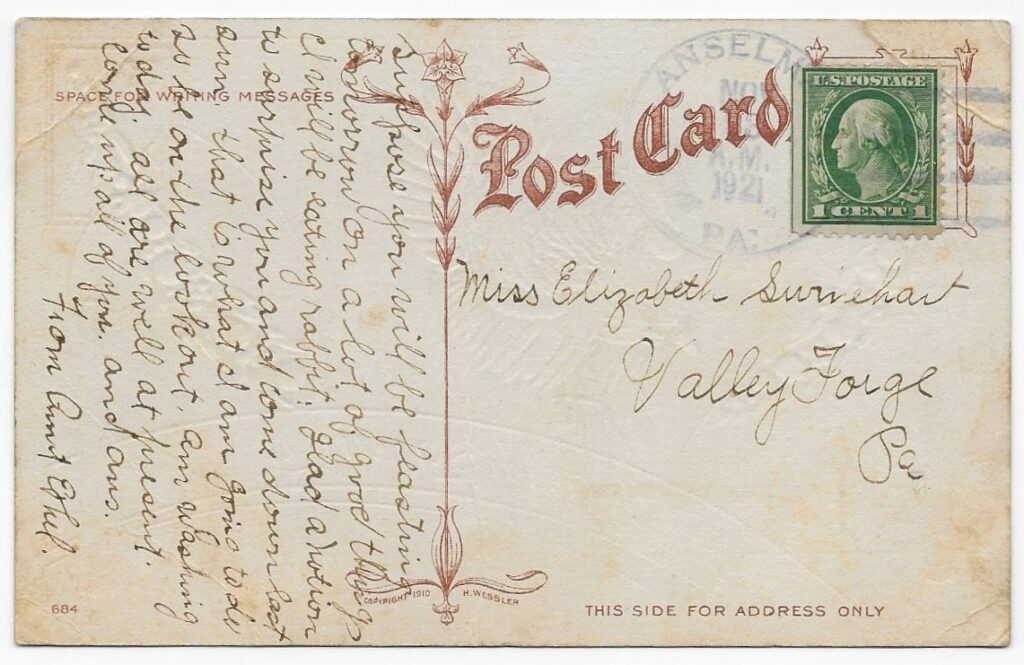 SPACE FOR WRITING MESSAGES
Post Card
ANSELM
NOV
A.M.
1921
PA.
U.S. POSTAGE
1 CENT 1
Suppose you will be feasting
tomorrow on a lot of good things
I will be eating rabbit. Had a notion
to surprise you and come down last
sun that is what I am going to do
so be on the lookout. am washing
today all are well at present.
Come up all of you. and ans.
From Aunt Ethel.
Miss Elizabeth Surinehart
Valley Forge
Pa
684
COPYRIGHT 1910 H. WESSLER
THIS SIDE FOR ADDRESS ONLY